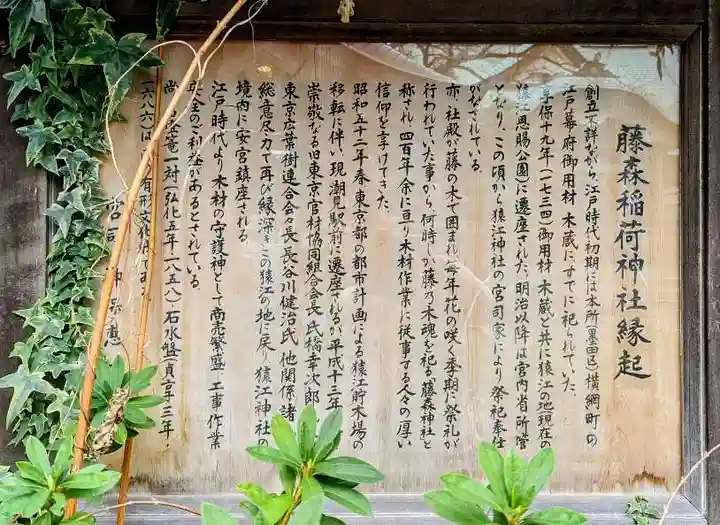 藤森稲荷神社縁起
創立不詳ながら、江戸時代初期には本所(墨田区)横綱町の
江戸幕府御用材木蔵にすでに祀られていた
享保十九年(一七三四)御用材木蔵と共に猿江の地現在の
猿江恩賜公園)に遷座された、明治以降は宮内省所管
となり、この頃から猿江神社の宮司家により祭祀奉仕
がなされている。
亦、社殿が藤の木で囲まれ毎年花の咲く季期に祭礼が
行われていた事から何時しか藤乃木魂を祀る藤森神社と
称され四百年余に亘り木材作業に従事する人々の厚い
信仰を享けてきた。
昭和五十二年春東京都の都市計画による猿江貯木場の
移転に伴い現潮見駅前に遷座されるが平成十三年
崇敬なる旧東京官材協同組合会長氏橋幸次郎
東京広葉樹連合会々長長谷川健治氏他関係諸
総意尽力で再び縁深きこの猿江の地に戻り猿江神社の
境内に安宮鎮座される
江戸時代より木材の守護神として商売繁盛工事作業
安全のご利益があるとされている。
尚 竜一対(弘化五年一八五八)石水盤(貞享三年
一六八六) 有形文化
宮司